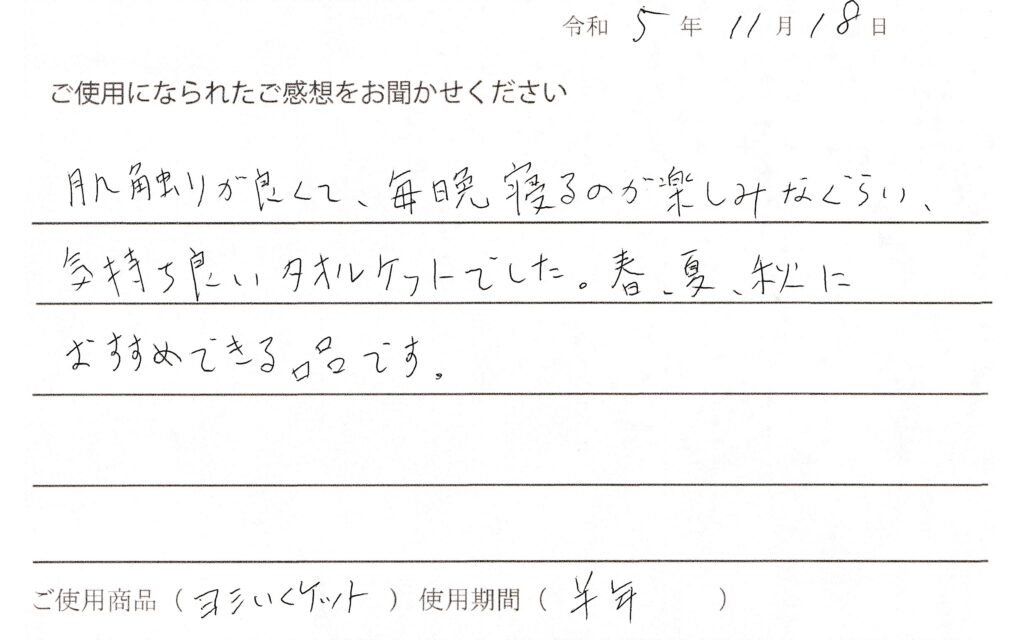 令和 5 年 11 月 18 日
ご使用になられたご感想をお聞かせください
肌触りが良くて、毎晩寝るのが楽しみなぐらい、
気持ち良いタオルケットでした。春、夏、秋に
おすすめできる品です。
ご使用商品（ ） 使用期間（ 半年 ）